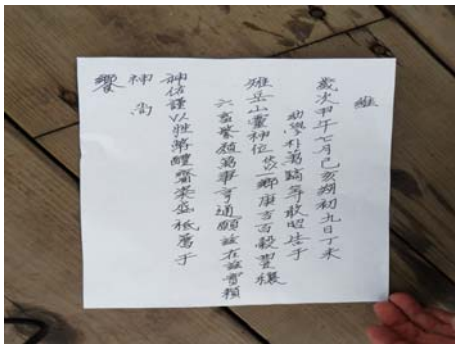 維
歲次甲午七月己亥朔初九日丁未
幼學朴萬等敢昭告于
雉岳山靈神位 伏以一鄕康吉百穀豊穰
六畜繁殖萬事亨通願玆在玆實賴
神佑謹以牲幣醴齊粢盛祗薦于
神 尙
饗